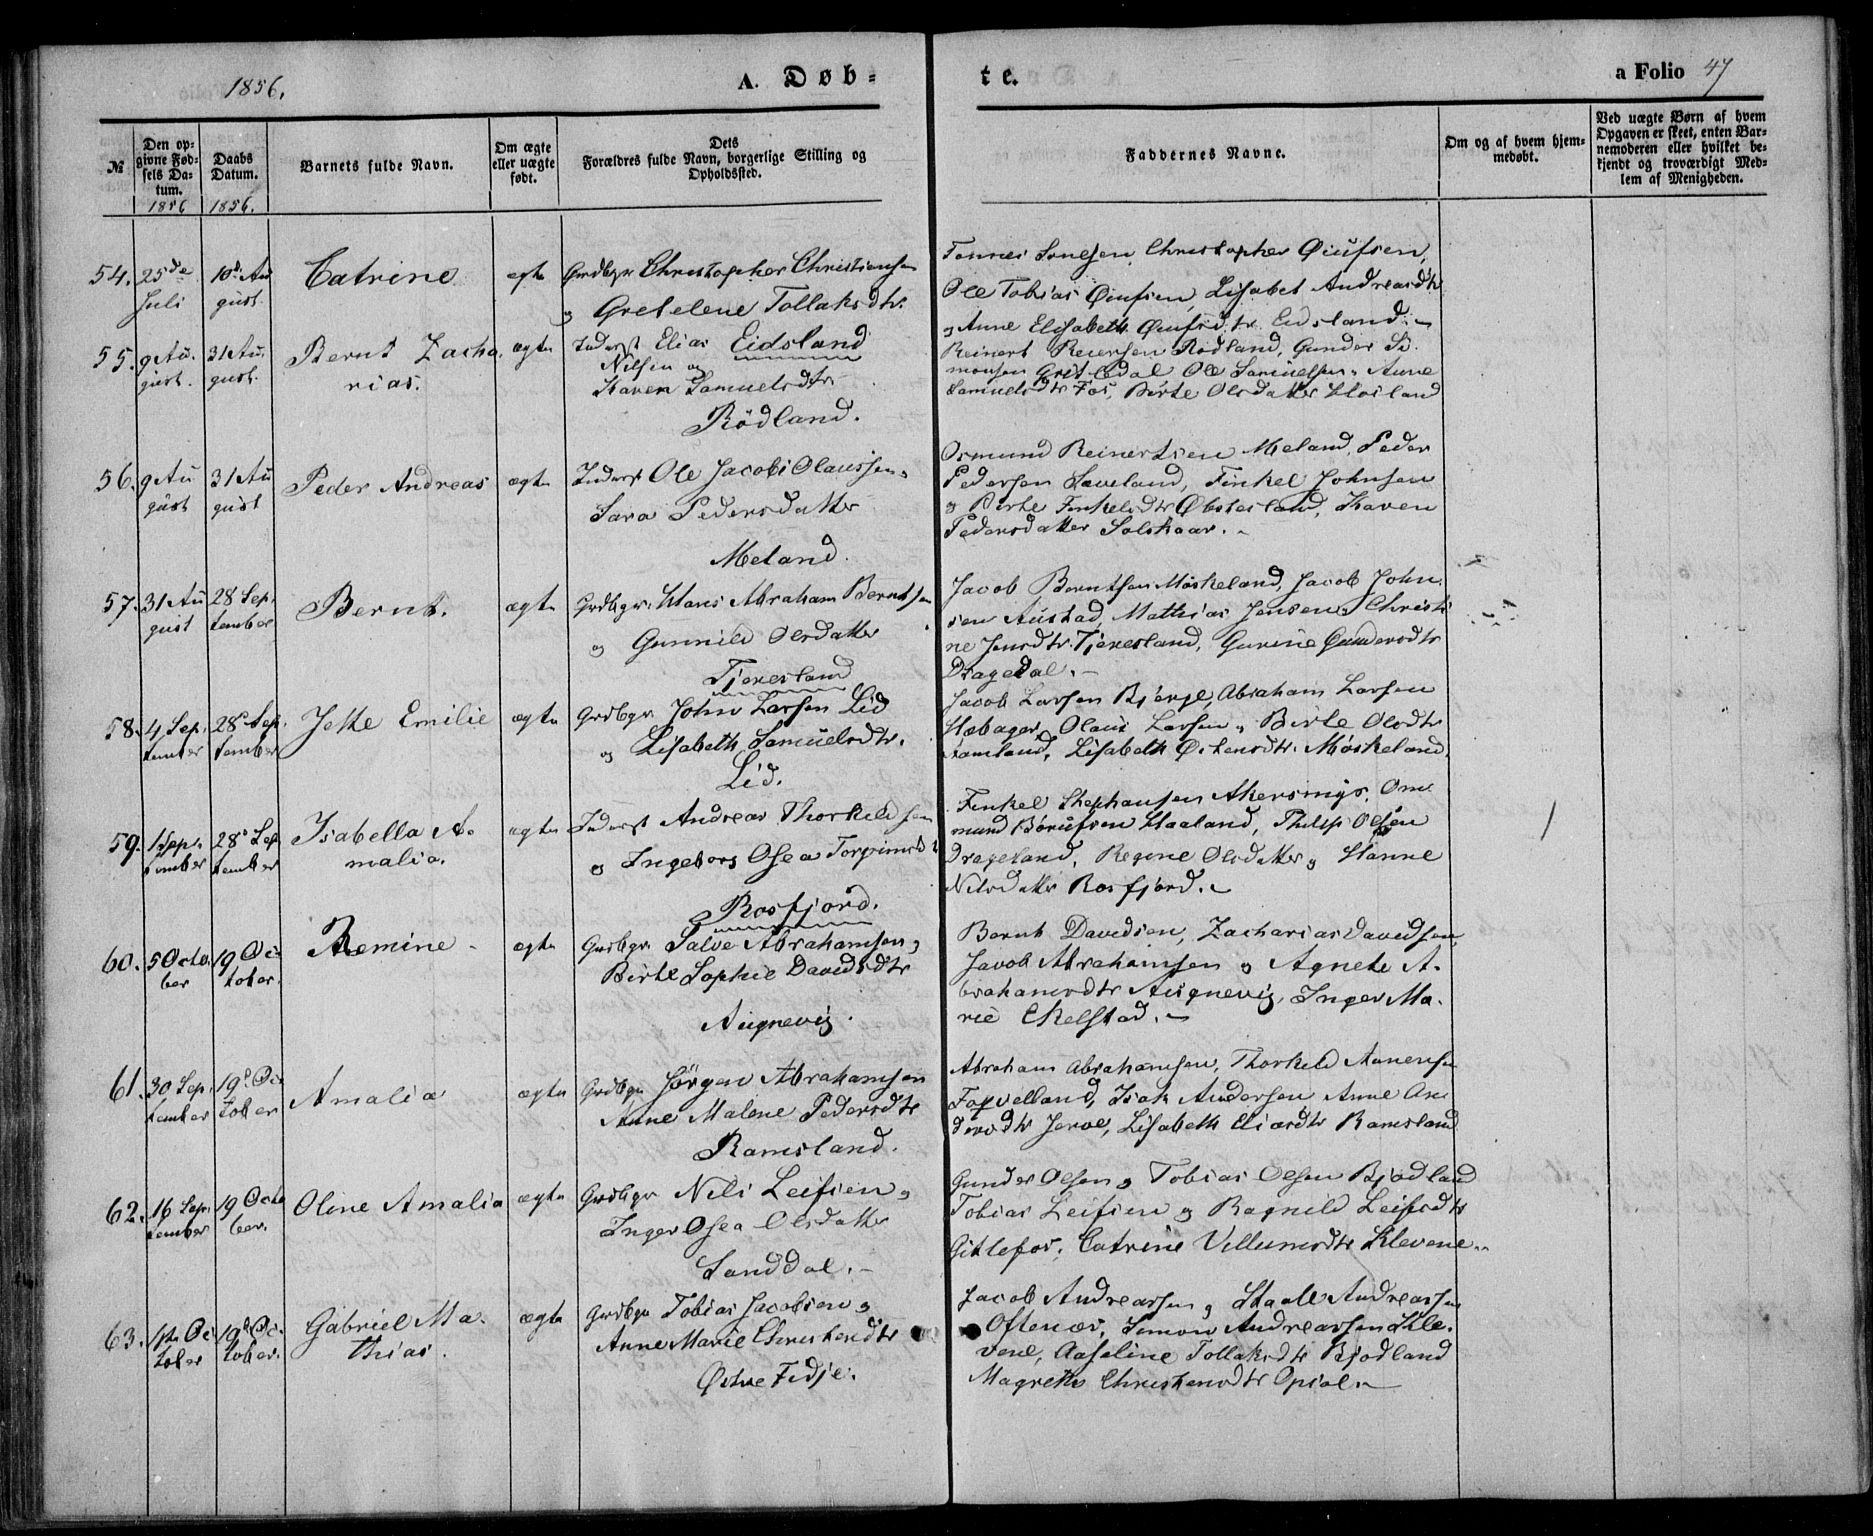 1856.
A. Døb-
te.
a Folio 47
№
Den op-
givne Fød-
sels Da-
tum.
1856
Daabs
Datum.
1856.
Barnets fulde Navn.
Om ægte
eller uægte
født.
Dets
Forældres fulde Navn, borgerlige Stilling og
Opholdssted.
Faddernes Navne.
Om og af hvem hjem-
medøbt.
Ved uægte Børn af hvem
Opgaven er skeet, enten Bar-
nemoderen eller hvilket be-
kjendt og troværdigt Med-
lem af Menigheden.
54. 25de
Juli
10d Au
gust.
Catrine
egte
Grdbgr Christopher Christiensen
og Gretelene Tollaksdtr.
Eidsland
Tonnes Christopher
Ole Tobias Lisabet Andreasdtr
og Anne Elisabeth Eidsland.
55. 9 Au.
gust.
31 Au.
gust.
Bernt Zacha
rias.
ægte
Inderst Elias
Nilsen og
Karen Samuelsdtr
Rödland.
Reinert Reiersen Rødland, Gunder Si
monsen Ole Samuelsen, Anne
Samuelsdtr Fos, Birte Olsdatter
56. 9 Au
gust
31 Au
gust
Peder Andreas
ægte
Inderst Ole Jacob Olaussen
Sara Pedersdatter
Meland.
Osmund Reinertsen Meland, Peder
Pedersen Finkel Johnsen
og Birte Finkelsdtr Karen
Pedersdatter
57. 31 Au
gust
28 Sep.
tember
Bernt.
ægte
Grdbgr. Hans Abraham Berntsen
og Gunnild Olsdatter
Tjeresland
Jacob Berntsen Møskeland, Jacob John.
sen Austad, Mathias Jensen, Christi
ne Jensdtr. Tjeresland, Gurine Gundersdtr
Dragedal.
58. 4 Sep.
tember
28d Sep.
tember
Jette Emilie
ægte
Grdbgr John Larsen Lid
og Lisabeth Samuelsdtr.
Lid.
Jacob Larsen Bjerge, Abraham Larsen
Olaus Larsen, Birte Olsdtr
Lisabeth Møskeland.
59.
tember
28d Sep
tember
Isabella A.
malia.
ægte
Inderst Andreas Thorkildsen
og Ingeborg Osea
Rosfjord.
Finkel Stephansen
mund Haaland, Philip Olsen
Drageland, Regine Olsdatter og Hanne
Nilsdatter Rosfjord.
60. 5 Octo.
ber
19 Oc
tober.
Remine
ægte
Grdbgr Salve Abrahamsen og
Birte Sophie Davidsdtr
Augnevig.
Bernt Davidsen, Zacharias Davidsen
Jacob Abrahamsen og Agnete A.
brahamsdtr Augnevig, Inger Ma.
rie Ekelstad.
61. 30 Sep.
tember
19d Oc
tober
Amalia
ægte
Grdbgr Jørgen Abrahamsen
Anne Malene Pedersdtr
Ramsland.
Abraham Abrahamsen, Thorkild Aanensen
Isak Andersen Anne An
dersdtr Jerve, Lisabeth Eliasdtr Ramsland
62. 16 Sep.
tember
19 Octo
ber.
Oline Amalia
ægte
Grdbgr Nils Leifsen og
Inger Osea Olsdatter
Sanddal.
Gunder Olsen og Tobias Olsen Bjodland
Tobias Leifsen og Ragnild Leifsdtr
Gitlefos. Catrine Villumsdtr Klevene.
63. Oc
tober
19d Oc
tober.
Gabriel Ma.
thias.
ægte
Grdbgr Tobias Jacobsen og
Anne Marie Christensdtr
Østre Fedje.
Jacob Andreassen og Staale Andreassen
Oftenæs, Simon Andreassen Kle.
vene, Aaseline Tollaksdtr Bjodland
Magrethe Christensdtr Opsal.